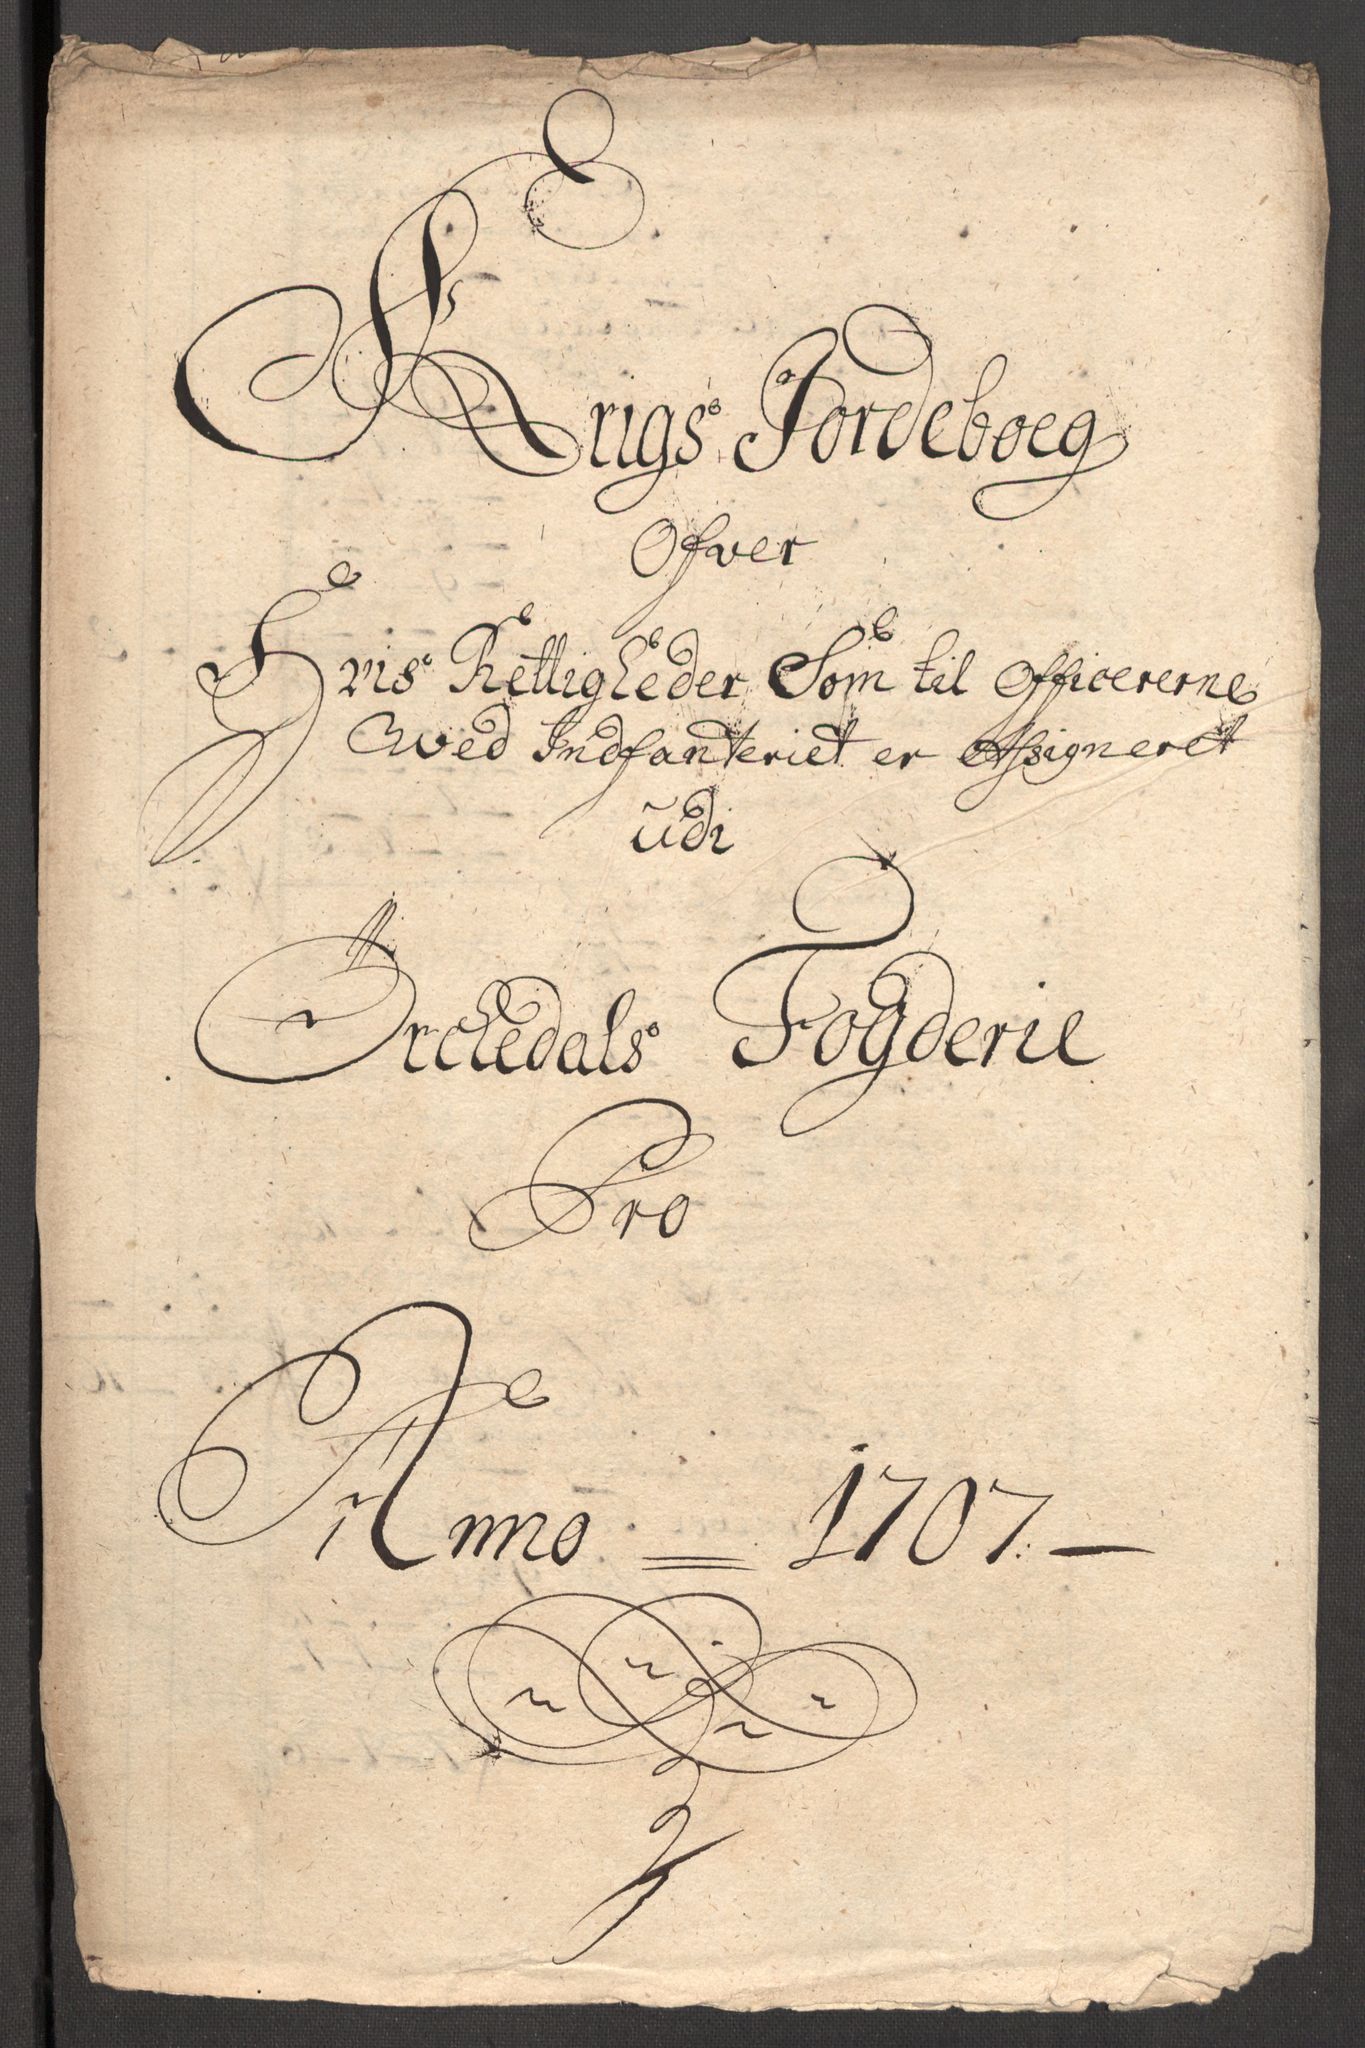 Krigs Jordeboeg
Ofver
Hvis Rettigheder Som til Officererne
Wed Indfanteriet er Assigneret
udi
Orchedals Fogderie
Pro
Anno = 1707 —